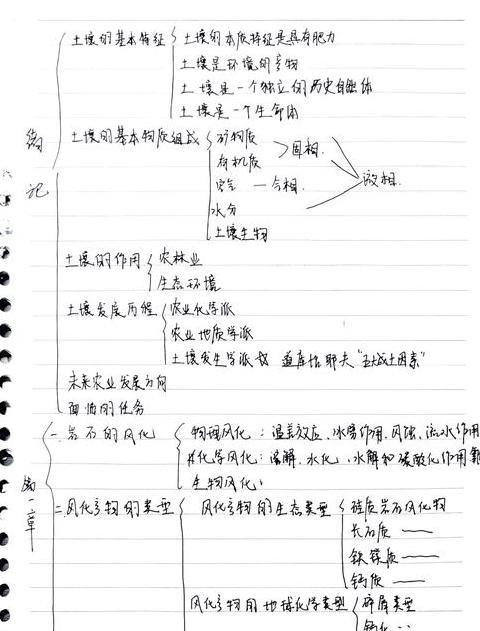 土壤的基本特征 土壤的本质特征是具有肥力
土壤是环境的产物
土壤是一个独立的历史自然体
土壤是一个生命体
土壤的基本物质组成 矿物质
固相
有机质
空气 — 气相
液相
水分
土壤生物
记
土壤的作用 农林业
生态环境
土壤发展历程 农业化学派
农业地质学派
土壤发生学派 道库恰耶夫 "五大成土因素"
未来农业发展方向
面临的任务
一、岩石的风化 物理风化：温差效应、冰劈作用、风蚀、流水作用
化学风化：溶解、水化、水解和碳酸化作用
生物风化：
第一章
二、风化产物的类型 风化产物的生态类型 硅质岩石风化物
长石质 ——
铁镁质 ——
钙质 ——
风化产物的地球化学类型 碎屑类型
钙化